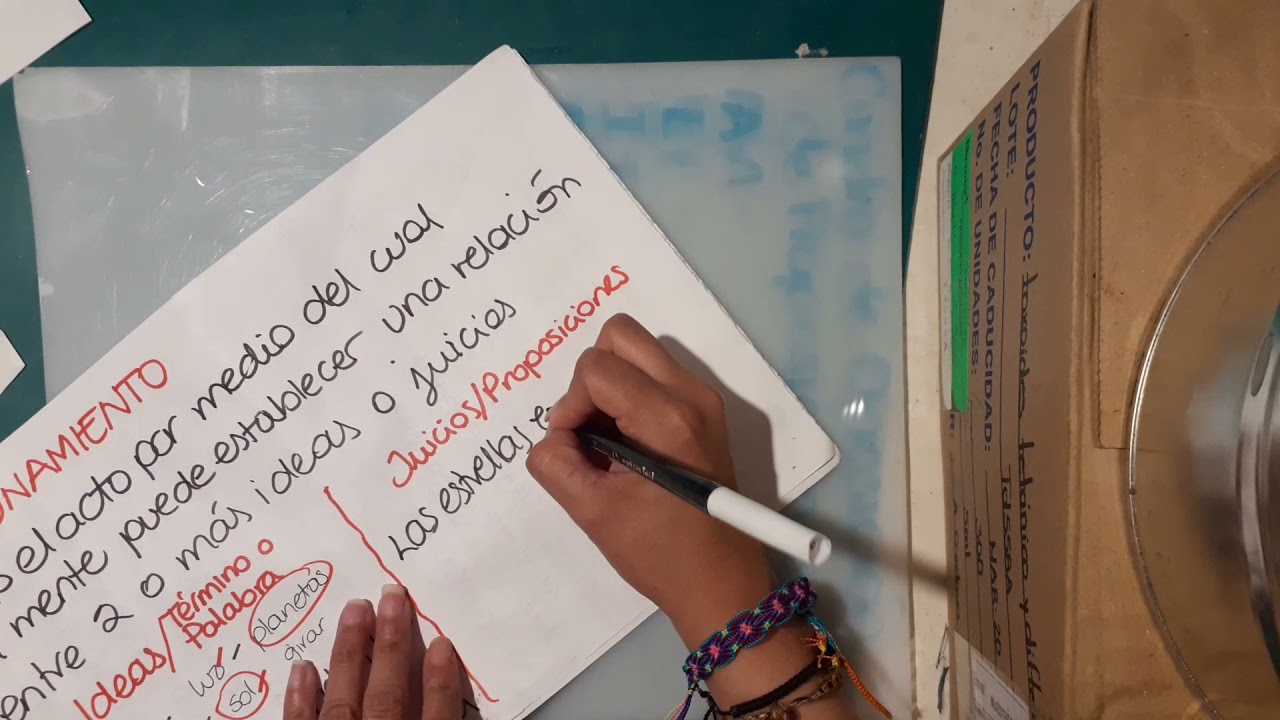 NAMIENTO
s el acto por medio del cual
mente puede establecer una relación
entre 2 o más ideas o juicios
Ideas/Término o
Palabra
planetas
girar
sol
Juicios/Proposiciones
Las estrellas e
PRODUCTO:
LOTE:
FECHA DE CADUCIDAD: MAR-20
No. DE UNIDADES: 300